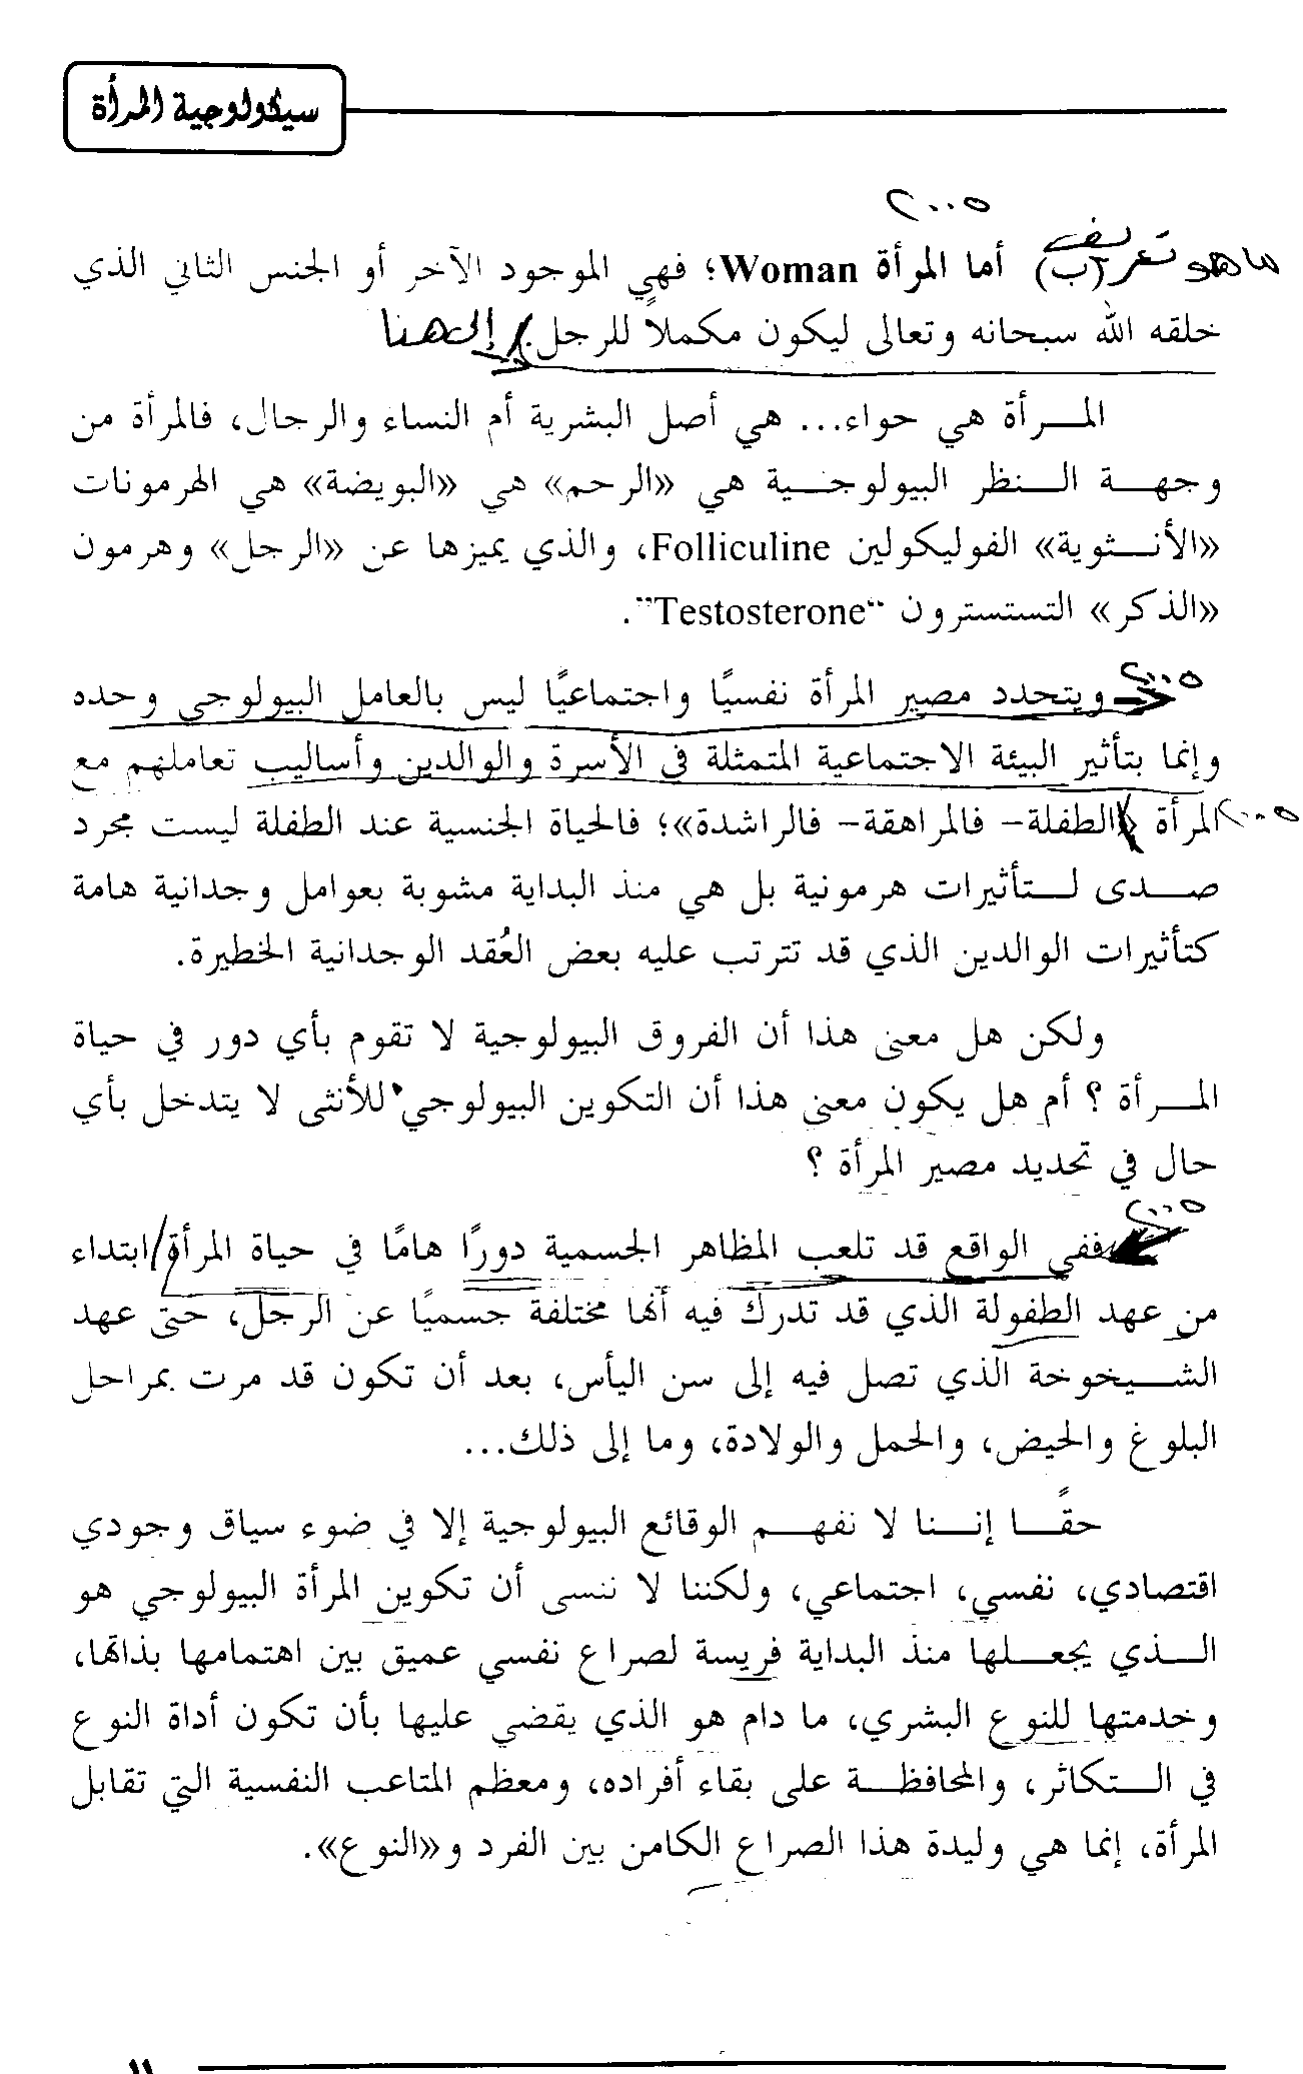 سيكولوجية المرأة
٢٠٠٥
ما هو تعريف (ب) أما المرأة Woman؛ فهي الموجود الآخر أو الجنس الثاني الذي
خلقه الله سبحانه وتعالى ليكون مكملاً للرجل. إلى هنا
المرأة هي حواء... هي أصل البشرية أم النساء والرجال، فالمرأة من
وجهة النظر البيولوجية هي «الرحم» هي «البويضة» هي الهرمونات
«الأنثوية» الفوليكولين Folliculine، والذي يميزها عن «الرجل» وهرمون
«الذكر» التستسترون "Testosterone".
٢٠٠٥
ويتحدد مصير المرأة نفسيًا واجتماعيًا ليس بالعامل البيولوجي وحده
وإنما بتأثير البيئة الاجتماعية المتمثلة في الأسرة والوالدين وأساليب تعاملهم مع
المرأة «الطفلة– فالمراهقة– فالراشدة»؛ فالحياة الجنسية عند الطفلة ليست مجرد
٢٠٠٥
صدى لتأثيرات هرمونية بل هي منذ البداية مشوبة بعوامل وجدانية هامة
كتأثيرات الوالدين الذي قد تترتب عليه بعض العُقد الوجدانية الخطيرة.
ولكن هل معنى هذا أن الفروق البيولوجية لا تقوم بأي دور في حياة
المرأة ؟ أم هل يكون معنى هذا أن التكوين البيولوجي للأنثى لا يتدخل بأي
حال في تحديد مصير المرأة ؟
٢٠٠٥
ففي الواقع قد تلعب المظاهر الجسمية دورًا هامًا في حياة المرأة/ ابتداء
من عهد الطفولة الذي قد تدرك فيه أنها مختلفة جسميًا عن الرجل، حتى عهد
الشيخوخة الذي تصل فيه إلى سن اليأس، بعد أن تكون قد مرت بمراحل
البلوغ والحيض، والحمل والولادة، وما إلى ذلك...
حقًا إننا لا نفهم الوقائع البيولوجية إلا في ضوء سياق وجودي
اقتصادي، نفسي، اجتماعي، ولكننا لا ننسى أن تكوين المرأة البيولوجي هو
الذي يجعلها منذ البداية فريسة لصراع نفسي عميق بين اهتمامها بذاتها،
وخدمتها للنوع البشري، ما دام هو الذي يقضي عليها بأن تكون أداة النوع
في التكاثر، والمحافظة على بقاء أفراده، ومعظم المتاعب النفسية التي تقابل
المرأة، إنما هي وليدة هذا الصراع الكامن بين الفرد و«النوع».
١١